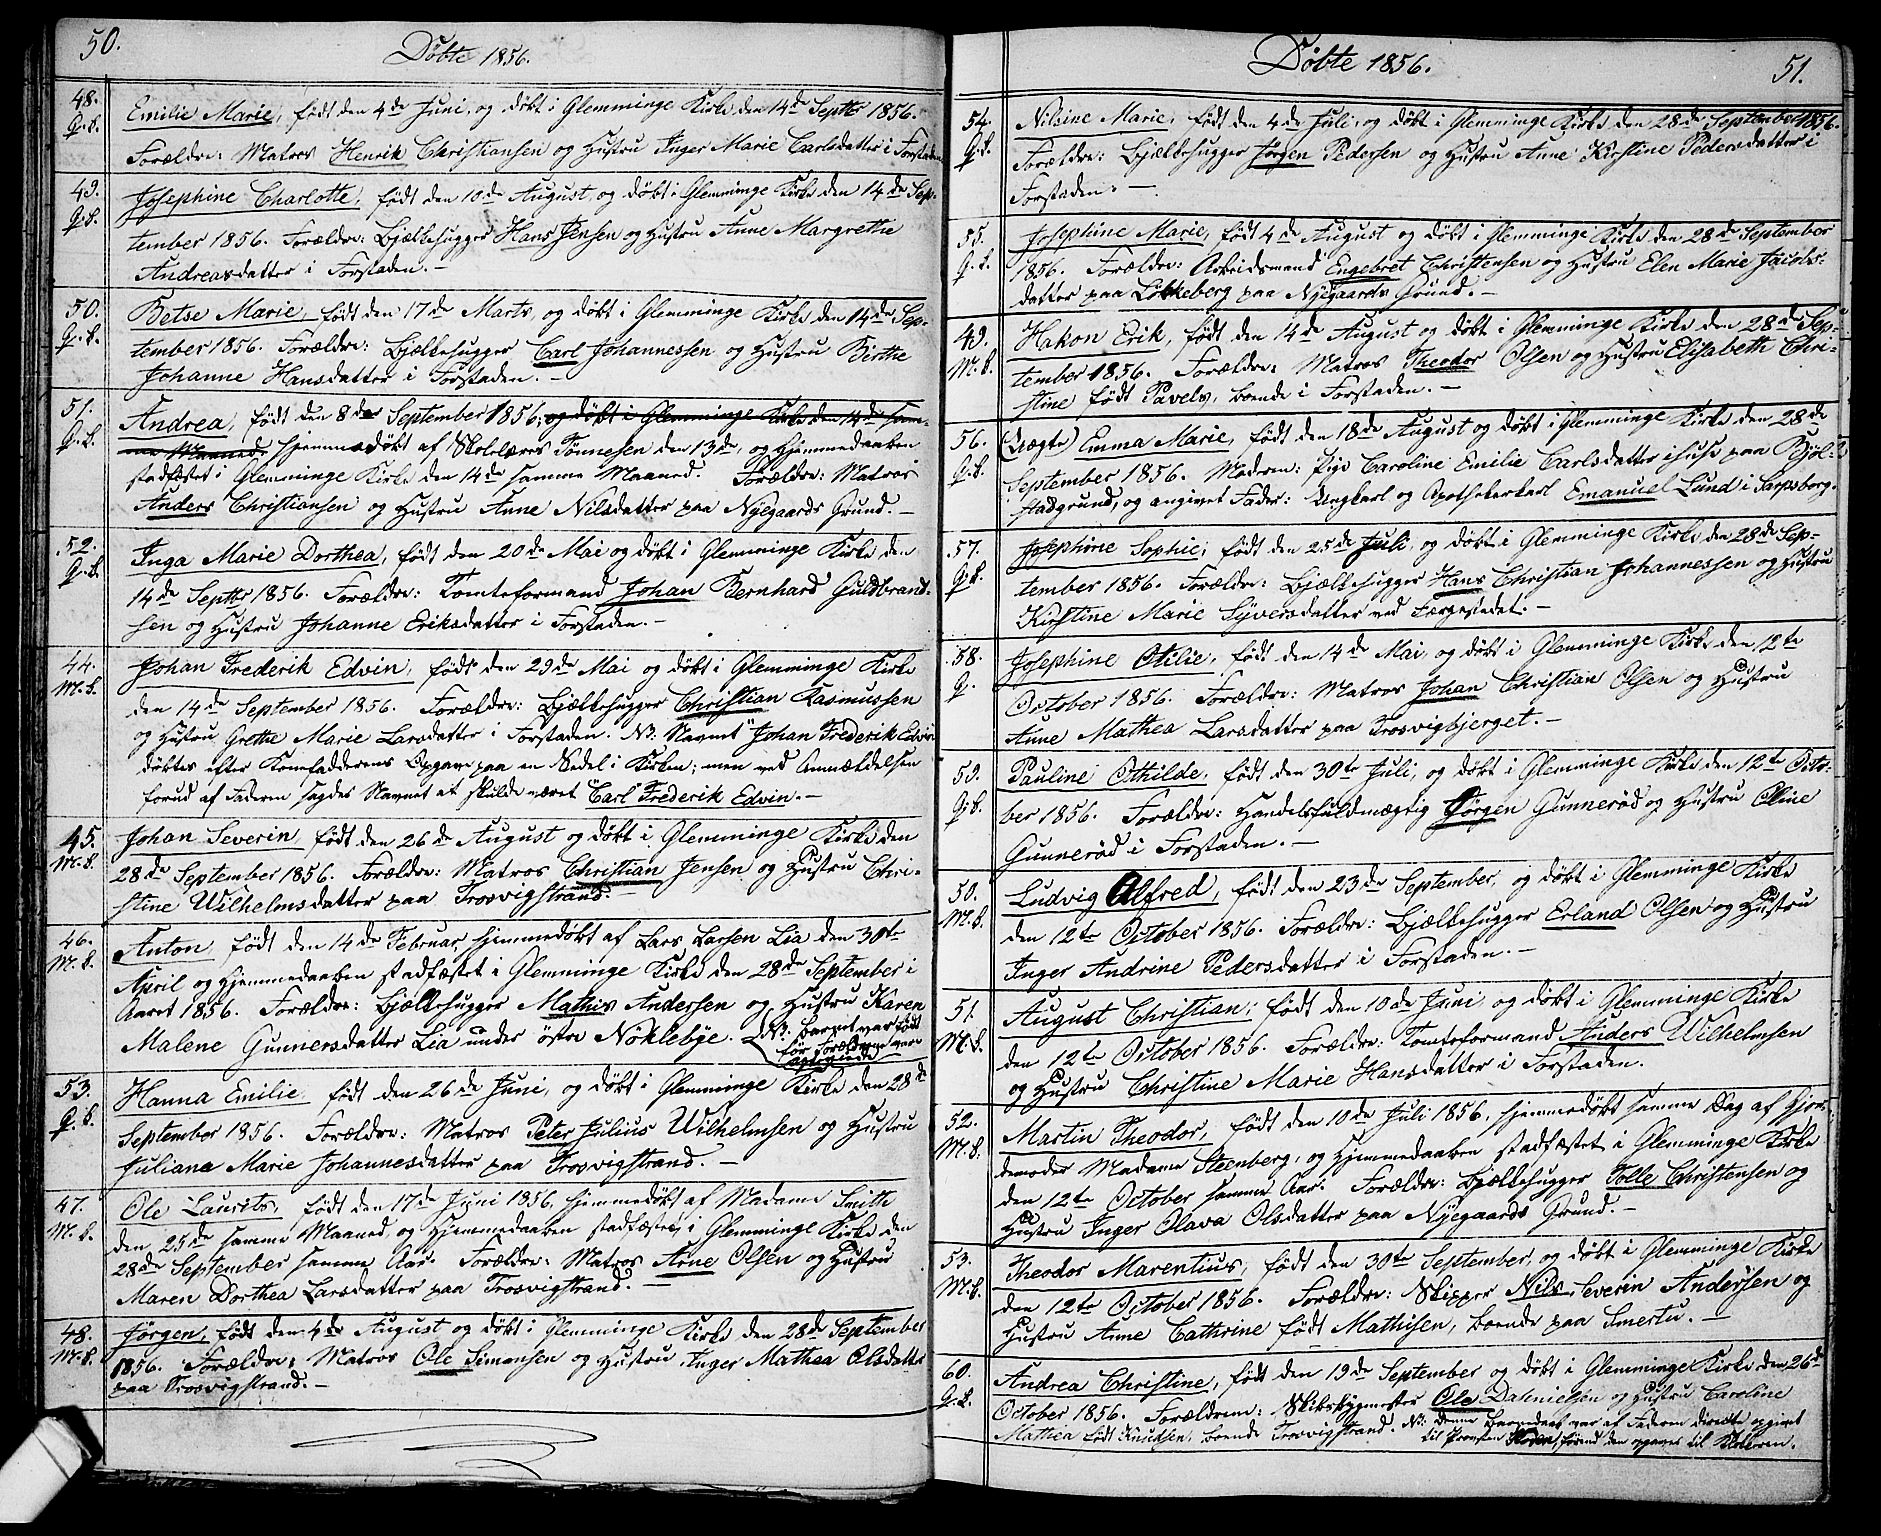 50.
Döbte 1856.
48. Emilie Marie, født den 4de Juni, og døbt i Glemminge Kirke den 14de Septbr 1856.
G.b. Forældre: Matros Henrik Christiansen og Hustru Inger Marie Carlsdatter i Forstaden
49. Josephine Charlotte, født den 10de August, og døbt i Glemminge Kirke den 14de Sep-
G.b. tember 1856. Forældre: Bjelkehugger Hans Jensen og Hustru Anne Margrethe
Andreasdatter i Forstaden.-
50. Betse Marie, født den 17de Marts, og døbt i Glemminge Kirke den 14de Sep-
G.b. tember 1856. Forældre: Bjelkehugger Carl Johannessen og Hustru Birthe
Johanne Hansdatter i Forstaden.-
51. Andrea, født den 8de September 1856, og døbt i Glemminge Kirke den 14de sam-
G.b. me Maaned. hjemmedøbt af Skolelærer Tønnesen den 13de, og Hjemmedaaben
stadfæstet i Glemminge Kirke den 14de samme Maaned. Forældre: Matros
Anders Christiansen og Hustru Anne Nilsdatter paa Nyegaards Grund.-
52. Inga Marie Dorthea, født den 20de Mai og døbt i Glemminge Kirke den
G.b. 14de Septbr 1856. Forældre: Tomteformand Johan Bernhard Guldbrand-
sen og Hustru Johanne Eriksdatter i Forstaden.-
44. Johan Frederik Edvin, født den 29de Mai og døbt i Glemminge Kirke
M.b. den 14de September 1856. Forældre: Bjelkehugger Christian Rasmussen
og Hustru Grethe Marie Larsdatter i Forstaden. NB. Navnet "Johan Frederik Edvin
døbtes efter Konefadderens Opgave paa en Sedel i Kirken; men ved Anmeldelsen
forud af Faderen sagdes Navnet at skulde været "Carl Frederik Edvin.-
45. Johan Severin, født den 26de August og døbt i Glemminge Kirke den
M.b. 28de September 1856. Forældre: Matros Christian Jensen og Hustru Chri-
stine Wilhelmsdatter paa Trosvigstrand.
46. Anton, født den 14de Februar, hjemmedøbt af Lars Larsen Lia den 30te
M.b. April og Hjemmedaaben stadfæstet i Glemminge Kirke den 28de September i
Aaret 1856. Forældre: Bjelkehugger Mathis Andersen og Hustru Karen
Malene Gunnersdatter Lia under østre Nöklebye. NB. Barnet var født
før Forældrene vare
ægteviede
53. Hanna Emilie, født den 26de Juni, og døbt i Glemminge Kirke den 28de
G.b. September 1856. Forældre: Matros Peter Julius Wilhelmsen og Hustru
Juliane Marie Johannesdatter paa Trosvigstrand.-
47. Ole Laurits, født den 17de Juni 1856, hjemmedøbt af Madame Smith
M.b. den 25de samme Maaned, og Hjemmedaaben stadfæstet i Glemminge Kirke den
28de September samme Aar. Forældre: Matros Arne Olsen og Hustru
Maren Dorthea Larsdatter paa Trosvigstrand.-
48. Jörgen, født den 4de August og døbt i Glemminge Kirke den 28de September
M.b. 1856. Forældre: Matros Ole Simonsen og Hustru Inger Mathea Olsdatter
paa Trosvigstrand.-
Döbte 1856.
51.
54. Nilsine Marie, født den 4de Juli, og døbt i Glemminge Kirke den 28de September 1856.
G.b. Forældre: Bjelkehugger Jörgen Pedersen og Hustru Anne Kirstine Pedersdatter i
Forstaden.-
55. Josephine Marie, født 4de August og døbt i Glemminge Kirke den 28de September
G.b. 1856. Forældre: Arbeidsmand Engebret Christensen og Hustru Elen Marie Jacobs-
datter paa Lökkeberg paa Nyegaards Grund.-
49. Hakon Erik, født den 14de August og døbt i Glemminge Kirke den 28de Sep-
M.b. tember 1856. Forældre: Matros Theodor Olsen og Hustru Elisabeth Chri-
stine født Pavels, boende i Forstaden.-
56. (Uægte) Emma Marie, født den 18de August og døbt i Glemminge Kirke den 28de
G.b. September 1856. Moderen: Pige Caroline Emilie Carlsdatter i Huse paa
stadgrund, og angivet Fader: Ungkarl og Apothekerkarl Emanuel Lund i Sarpsborg.
57. Josephine Sophie, født den 25de Juli, og døbt i Glemminge Kirke den 28de Sep-
G.b. tember 1856. Forældre: Bjelkehugger Hans Christian Johannessen og Hustru
Kirstine Marie Syversdatter ved Færgestedet.-
58. Josephine Otilie, født den 14de Mai, og døbt i Glemminge Kirke den 12te
G. October 1856. Forældre: Matros Johan Christian Olsen og Hustru
Anne Mathea Larsdatter paa Trosvigbjerget.-
59. Pauline Othilde, født den 30te Juli, og døbt i Glemminge Kirke den 12te Octo-
G.b. ber 1856. Forældre: Handelsfuldmægtig Jörgen Gunneröd og Hustru Oline
Gunneröd i Forstaden.-
50. Ludvig Alfred, født den 23de September, og døbt i Glemminge Kirke
M.b. den 12te October 1856. Forældre: Bjelkehugger Erland Olsen og Hustru
Inger Andrine Pedersdatter i Forstaden.-
51. August Christian, født den 10de Juni, og døbt i Glemminge Kirke
M.b. den 12te October 1856. Forældre: Tomteformand Anders Wilhelmsen
og Hustru Christine Marie Hansdatter i Forstaden.
52. Martin Theodor, født den 10de Juli 1856, hjemmedøbt samme Dag af Gjor-
M.b. demoder Madame Steenberg, og Hjemmedaaben stadfæstet i Glemminge Kirke
den 12te October samme Aar. Forældre: Bjelkehugger Tolle Christensen og
Hustru Inger Olava Olsdatter paa Nyegaards Grund.-
53. Theodor Marentius, født den 30te September, og døbt i Glemminge Kirke
M.b. den 12te October 1856. Forældre: Skipper Nils Severin Andersen og
Hustru Anne Cathrine født Mathisen, boende paa Smertu.-
60. Andrea Christine, født den 19de September og døbt i Glemminge Kirke den 26de
G.b. October 1856. Forældrene: Skibsbygmester Ole Danielsen og Hustru Caroline
Mathea født Knudsen, boende Trosvigstrand. NB: denne Barnedaab var af Faderen directe opgivet
til Provsten førend den opgaves til Klokkeren.